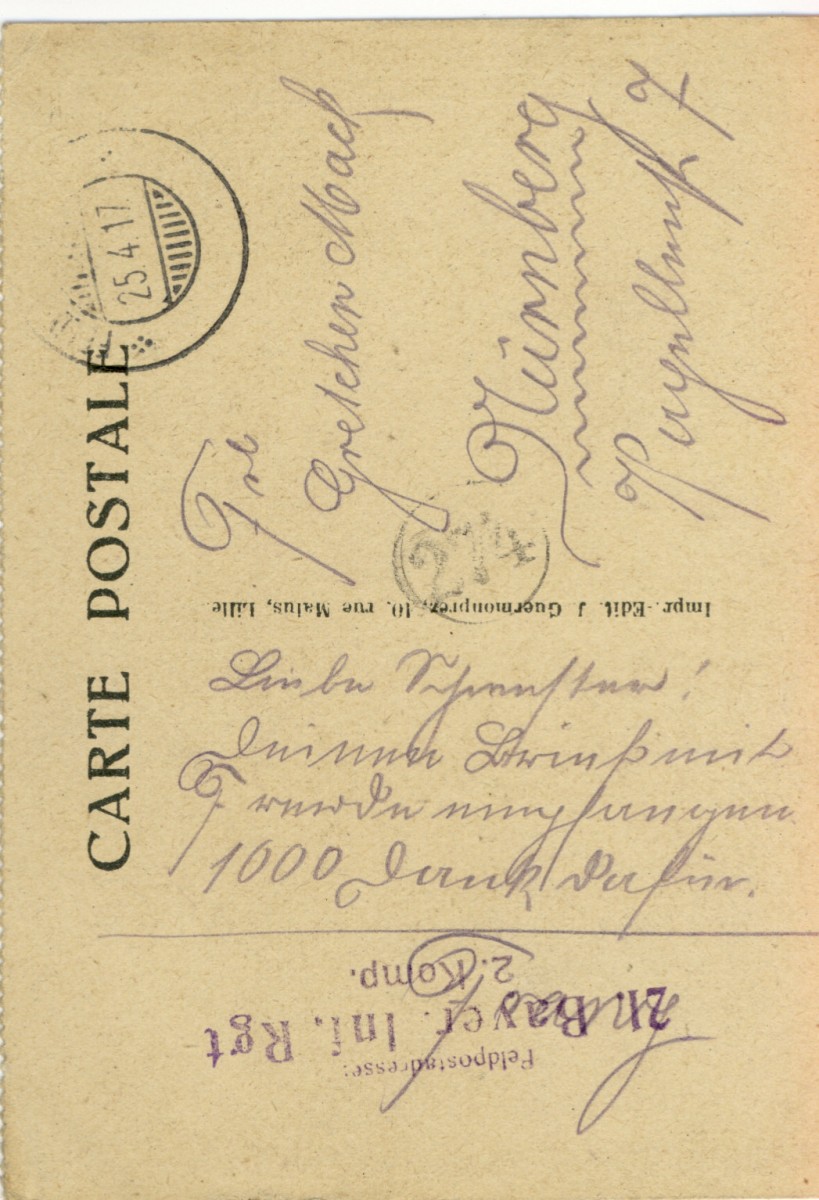 CARTE POSTALE
25.4.17
Frl
Gretchen Mack
Nürnberg
7
274
Impr.-Edit. J Guermonprez, 10, rue Maius, Lille
Liebe Schwester!
Deinen Brief mit
Freude empfangen
1000 Dank dafür.
Feldpostadresse:
21. Bayer. Inf. Rgt
2. Komp.